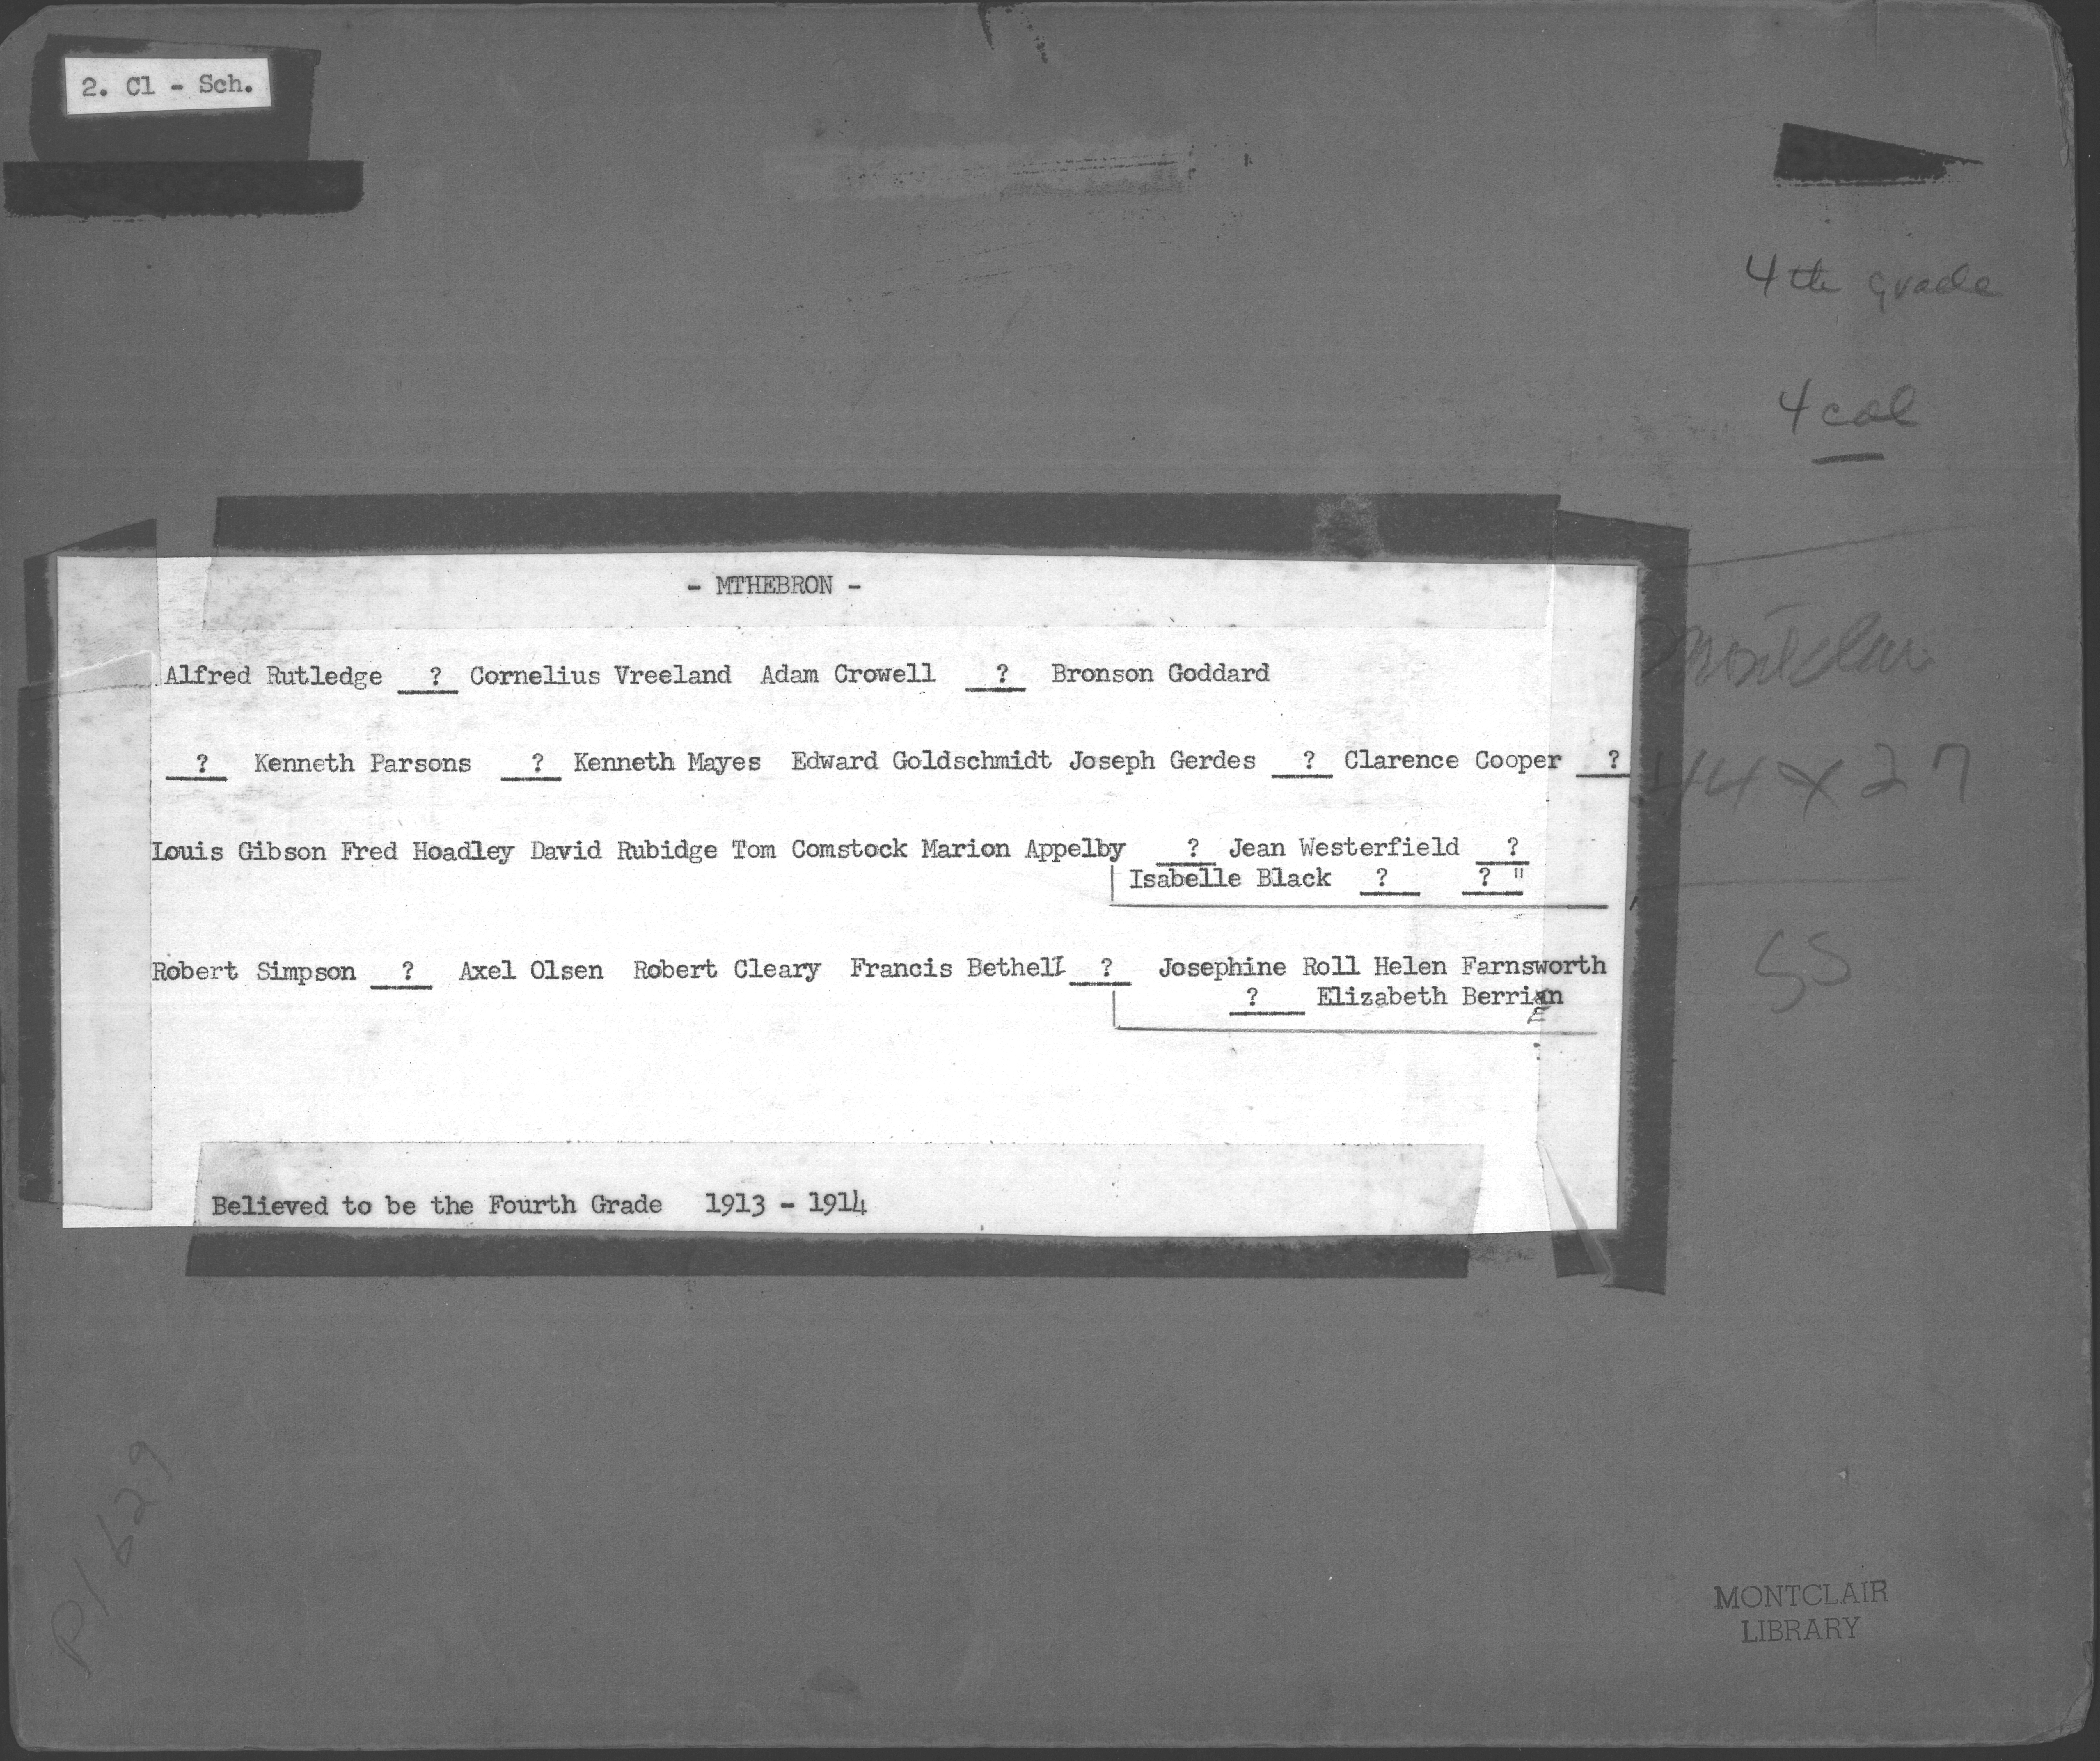 2. Cl - Sch.
4th grade
4 col
- MTHEBRON -
Alfred Rutledge ? Cornelius Vreeland Adam Crowell ? Bronson Goddard
? Kenneth Parsons ? Kenneth Mayes Edward Goldschmidt Joseph Gerdes ? Clarence Cooper ?
44 x 27
Louis Gibson Fred Hoadley David Rubidge Tom Comstock Marion Appelby ? Jean Westerfield ?
Isabelle Black ? ? "
Robert Simpson ? Axel Olsen Robert Cleary Francis Bethell ? Josephine Roll Helen Farnsworth
? Elizabeth Berrian
SS
Believed to be the Fourth Grade 1913 - 1914
P1629
MONTCLAIR
LIBRARY